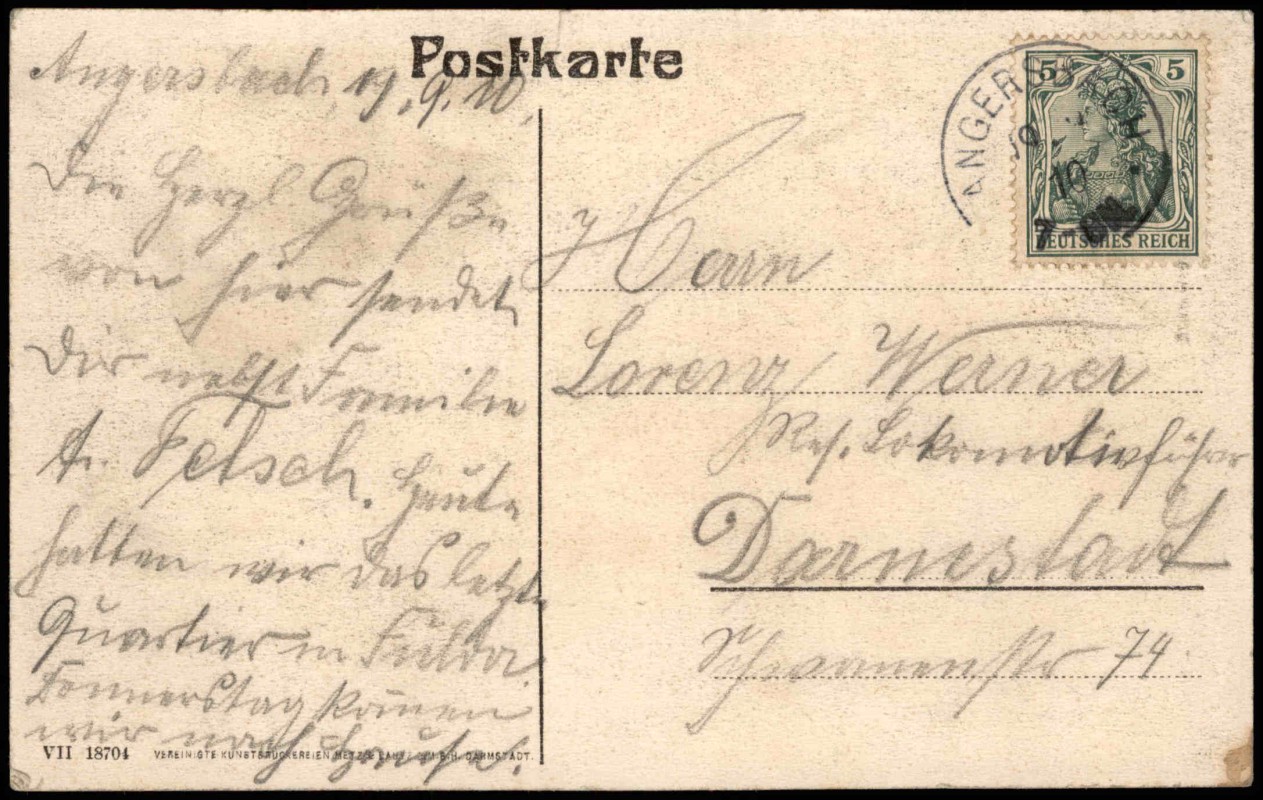 Postkarte
Angersbach, 19.9.10.
Die Herzl Grüße
von hier sendet
Dir nebst Familie
A. Fetsch. Heute
hatten wir das letzte
Quartier in Fulda.
Donnerstag kommen
wir nach Hause.
VII 18704 VEREINIGTE KUNSTDRUCKEREIEN METZ & LAUTZ G.M.B.H. DARMSTADT.
ANGERSBACH
10
7-8N.
5 5
DEUTSCHES REICH
Herrn
Lorenz Werner
Res. Lokomotivführer
Darmstadt
Schwanenstr 74